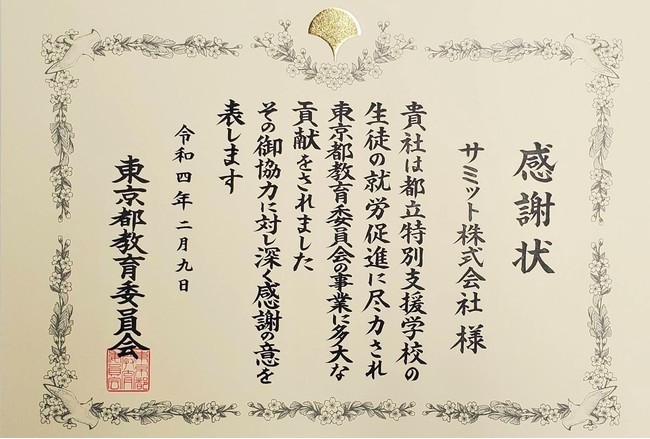 感謝状
サミット株式会社 様
貴社は都立特別支援学校の
生徒の就労促進に尽力され
東京都教育委員会の事業に多大な
貢献をされました
その御協力に対し深く感謝の意を
表します
令和四年二月九日
東京都教育委員会